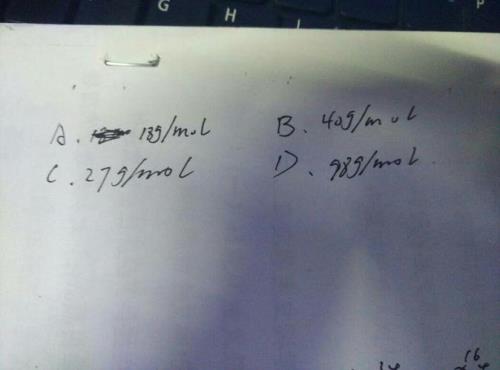 G H
A. 18g/mol B. 40g/mol
C. 27g/mol D. 98g/mol
16